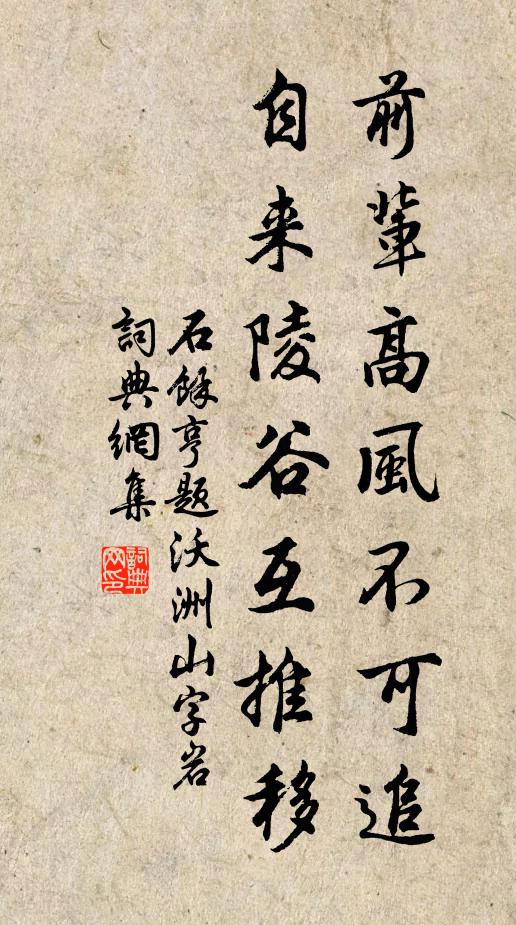 前輩高風不可追
自来陵谷互推移
石餘亨题沃洲山字岩
詞典網集
詞典网印